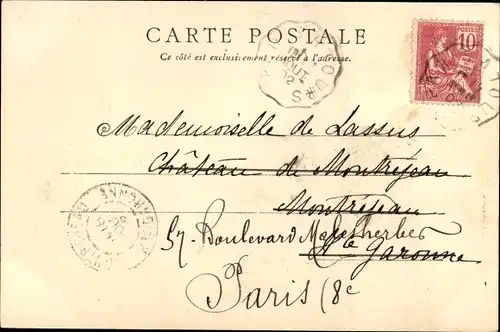 CARTE POSTALE
Ce côté est exclusivement réservé à l'adresse.
POSTES
10
Mademoiselle de Lassus
Château de Montréjeau
Montréjeau
57, Boulevard Malesherbes
Hte Garonne
Paris (8e